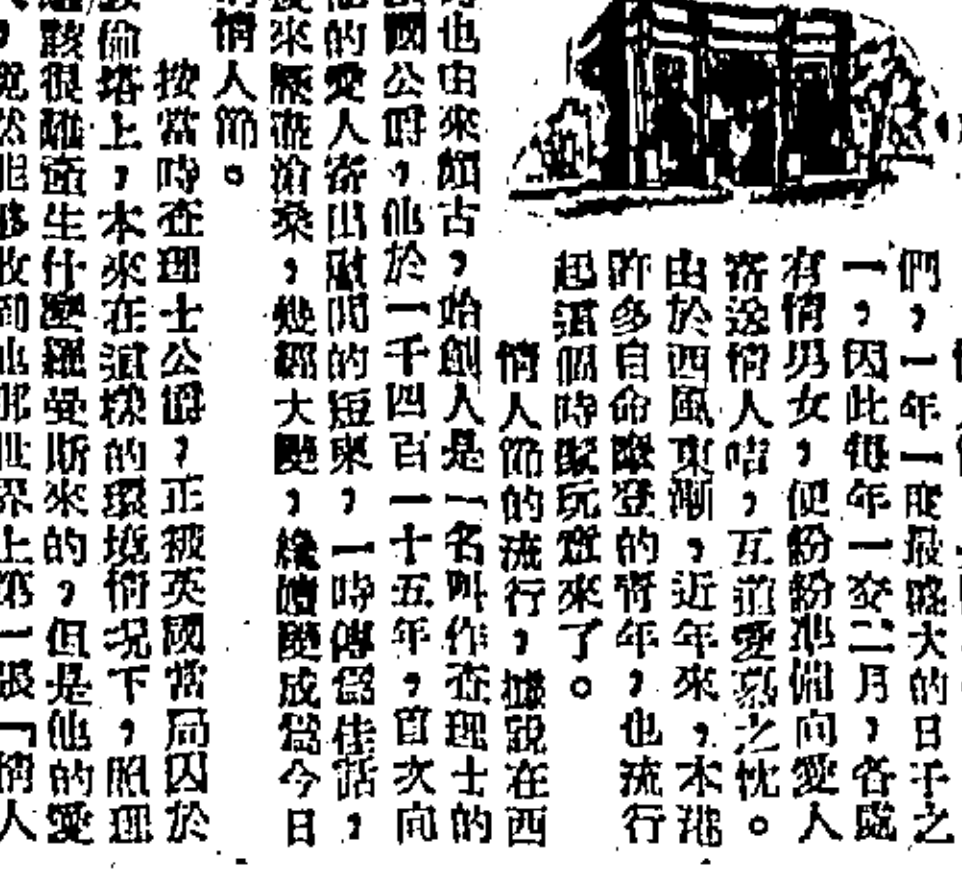 們，一年一度最盛大的日子之
一，因此每年一交二月，各處
有情男女，便紛紛準備向愛人
寄送情人咭，互道愛慕之忱。
由於西風東漸，近年來，本港
許多自命摩登的青年，也流行
起這個時髦玩意來了。
情人節的流行，據說在西
也由來頗古，始創人是一名叫作查理士的
國公爵，他於一千四百一十五年，首次向
的愛人寄出閨的短柬，一時傳爲佳話，
來歷滄桑，幾經大變，纔嬗變成爲今日
情人節。
按當時查理士公爵，正被英國當局囚於
倫塔上，本來在這樣的環境情况下，照理
該很難產生什麼羅曼斯來的，但是他的愛
然能夠收到他那世界上第一張「情人